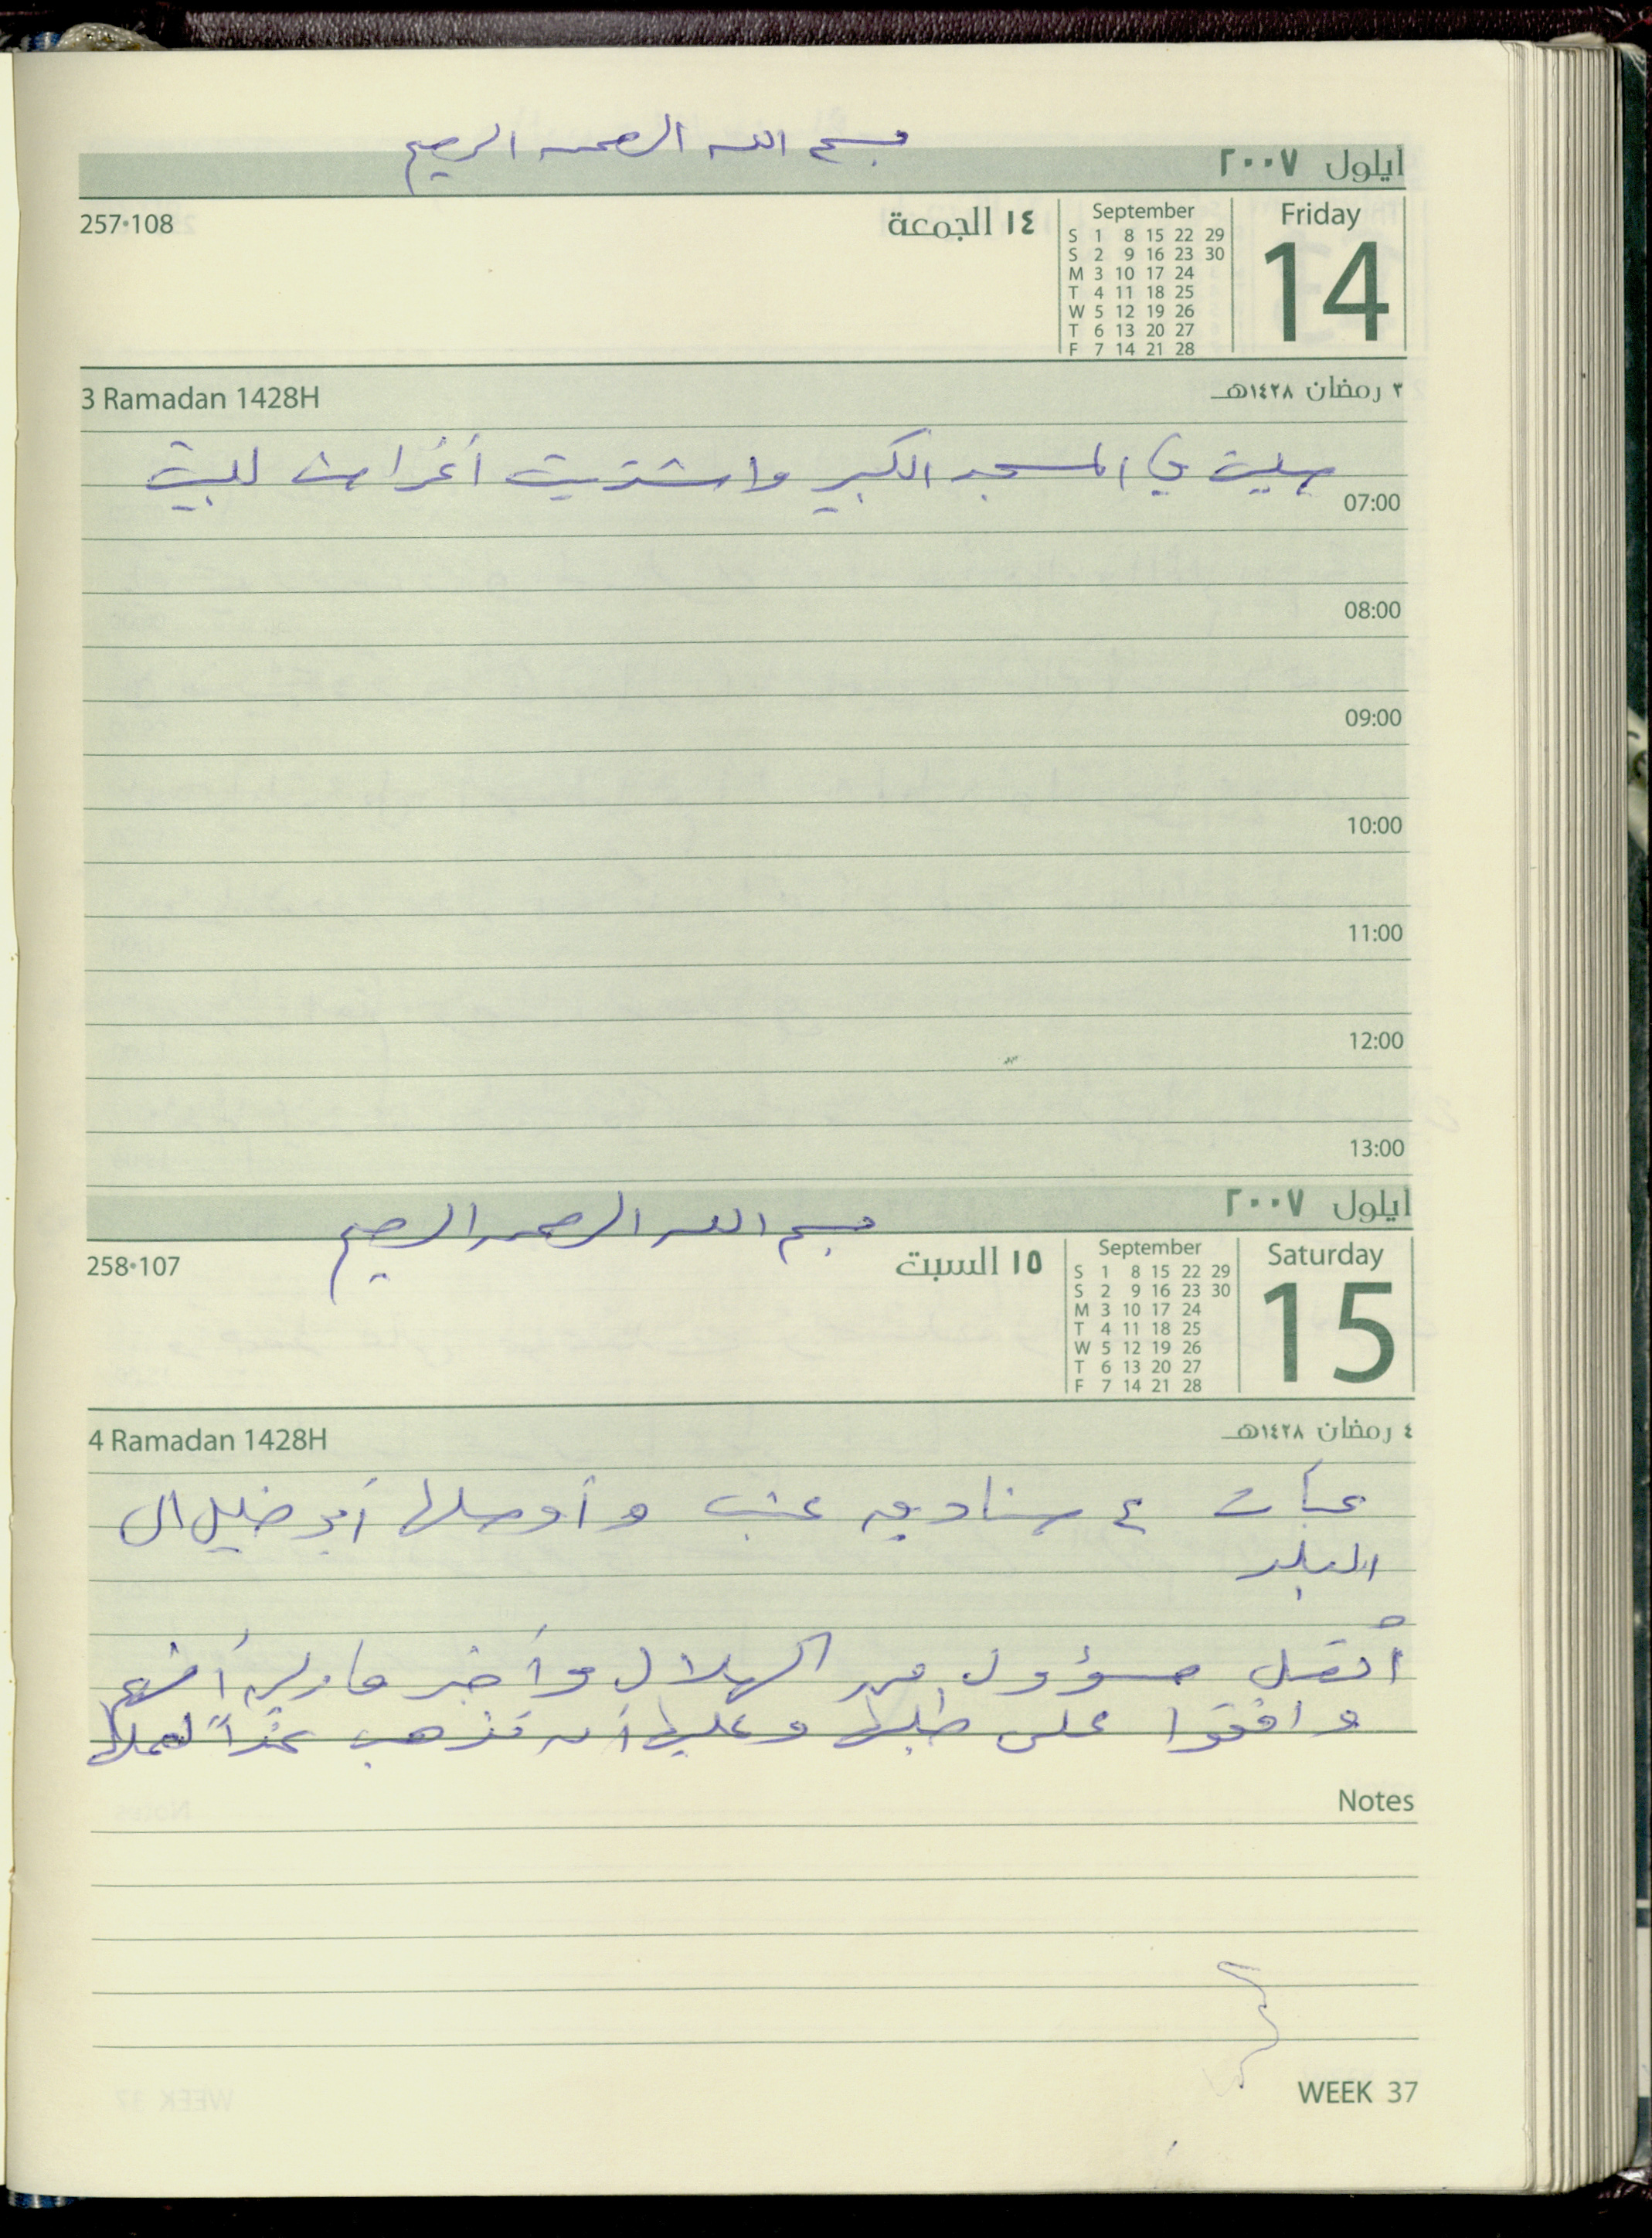 بسم الله الرحمن الرحيم
ايلول ٢٠٠٧
257•108
١٤ الجمعة
September
S 1 8 15 22 29
S 2 9 16 23 30
M 3 10 17 24
T 4 11 18 25
W 5 12 19 26
T 6 13 20 27
F 7 14 21 28
Friday
14
3 Ramadan 1428H
٣ رمضان ١٤٢٨هـ
صليت في المسجد الكبير واشتريت أغراض للبيت
07:00
08:00
09:00
10:00
11:00
12:00
13:00
ايلول ٢٠٠٧
بسم الله الرحمن الرحيم
258•107
١٥ السبت
September
S 1 8 15 22 29
S 2 9 16 23 30
M 3 10 17 24
T 4 11 18 25
W 5 12 19 26
T 6 13 20 27
F 7 14 21 28
Saturday
15
4 Ramadan 1428H
٤ رمضان ١٤٢٨هـ
عبأت ٤ صناديق عنب وأوصلها أبو خليل الى
البلد
أتصل مسؤول من الهلال وأخبر أنهم
وافقوا على طلبها وعليها أن تذهب غداً لعملها
Notes
WEEK 37